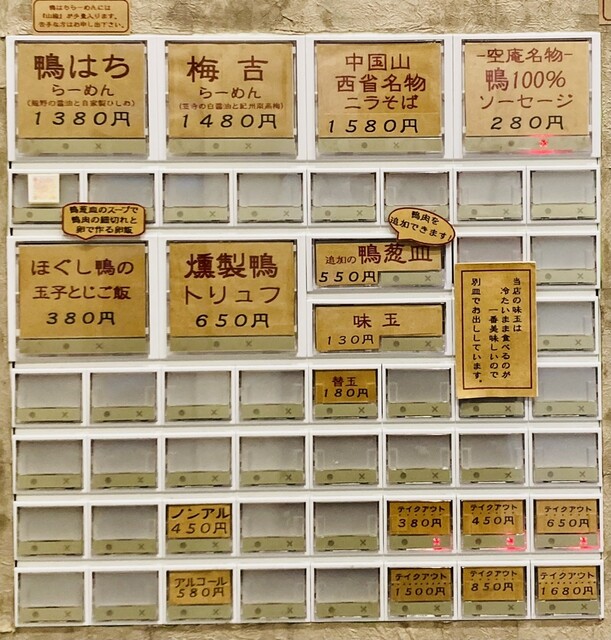 鴨はちらーめんには
『山椒』が少量入ります。
苦手な方はお申し出下さい。
鴨はち
らーめん
(龍野の醤油と自家製ひしお)
1380円
梅吉
らーめん
1480円
中国山
西省名物
ニラそば
1580円
-空庵名物-
鴨100%
ソーセージ
280円
鴨葱皿のスープで
鴨肉の細切れと
卵で作る卵飯
ほぐし鴨の
玉子とじご飯
380円
燻製鴨
トリュフ
650円
鴨肉を
追加できます!
追加の鴨葱皿
550円
味玉
130円
当店の味玉は
冷たいまま食べるのが
一番美味しいので
別皿でお出ししています。
替玉
180円
ノンアル
450円
テイクアウト
380円
テイクアウト
450円
テイクアウト
650円
アルコール
580円
テイクアウト
1500円
テイクアウト
850円
テイクアウト
1680円